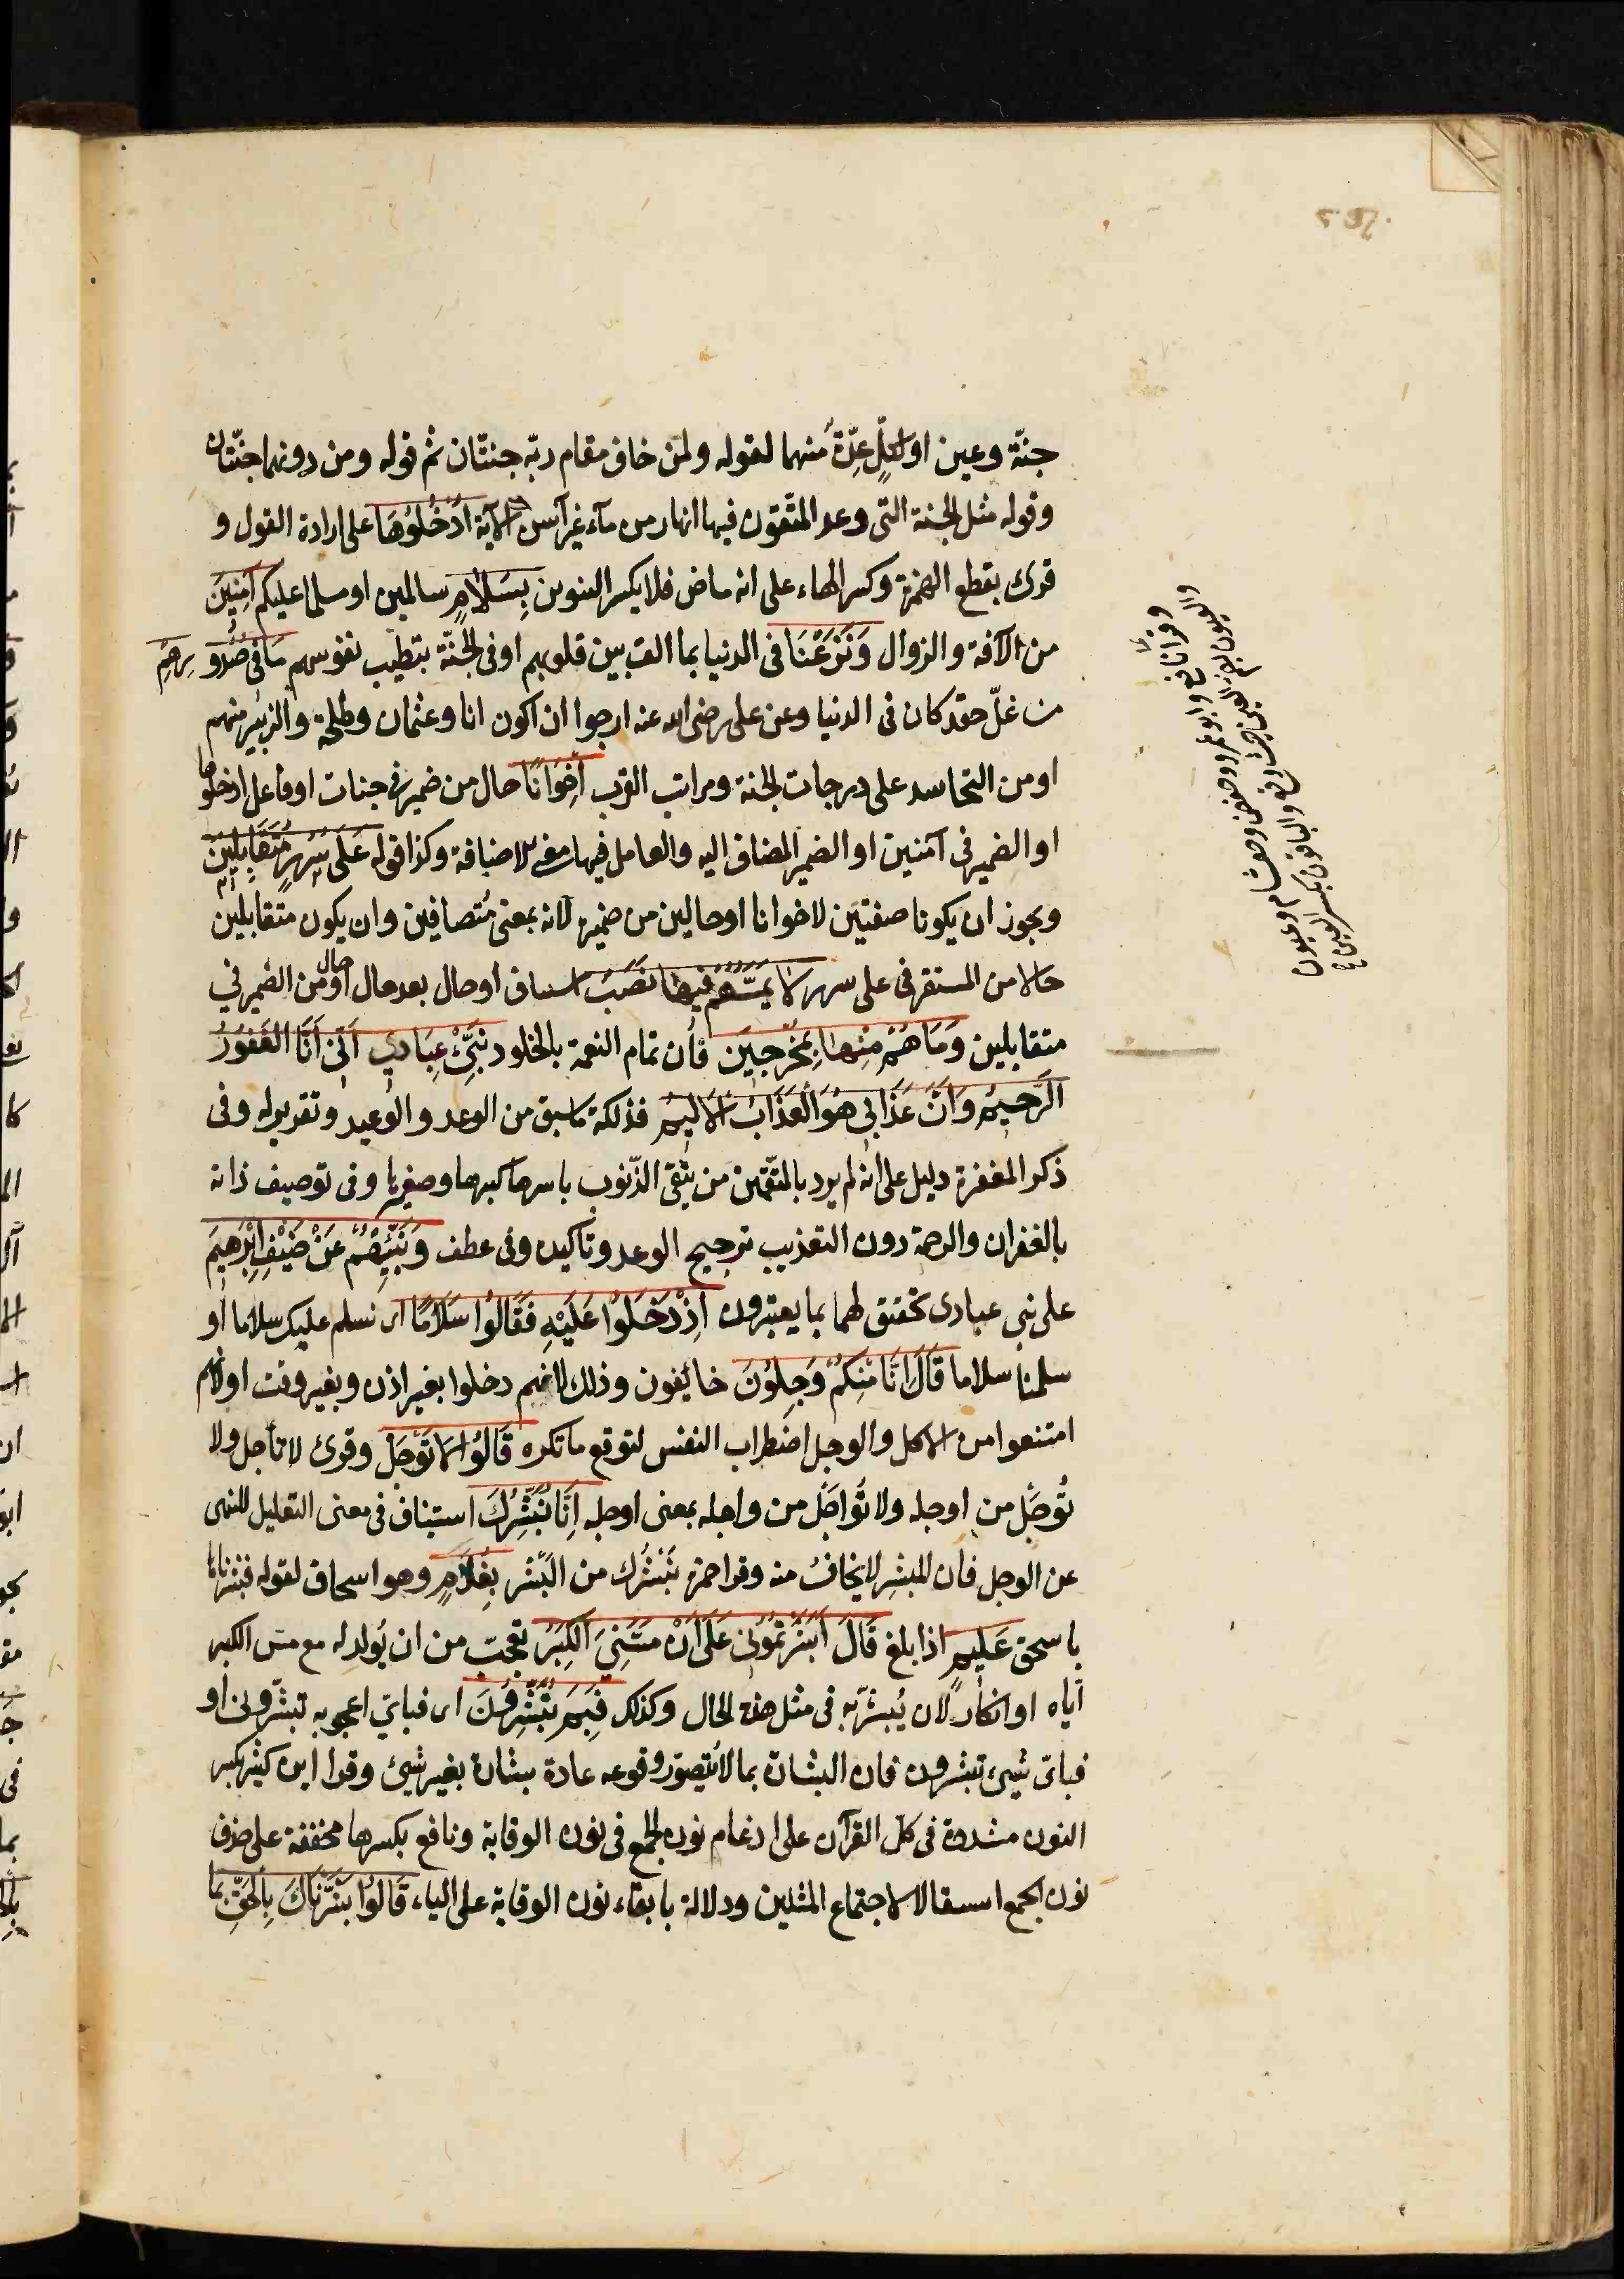 جنّة وعين او لكلٍ عِدّةٌ منهما لقوله ولمن خاف مقام ربّه جنتّان ثم قوله ومن دونهما جنّتان
وقوله مثل الجنة التى وعد المتّقون فيها انهار من مآء غير آسن الآية اُدْخُلُوهَا على ارادة القول و
قرئ بقطع الهمزة وكسر الخاء على انه ماض فلا يكسر التنوين بِسَلَامٍ سالمين او مسلما عليكم آمِنِينَ
من الآفة والزوال وَنَزَعْنَا فى الدنيا بما الف بين قلوبهم او فى الجنّة بتطيب نفوسهم مَا فِى صُدُورِهِمْ
من غلّ حقد كان فى الدنيا وعن على رضى الله عنه ارجوا ان اكون انا وعثمان وطلحة والزبير منهم
او من التحاسد على درجات الجنة ومراتب القرب اِخْوَانًا حال من ضمير فى جنات او فاعل ادخلوها
او الضمير فى آمنين او الضمير المضاف اليه والعامل فيها معنى الاضافة وكذا قوله عَلَى سُرُرٍ مُتَقَابِلِينَ
ويجوز ان يكونا صفتين لاخوانا او حالين من ضميره لانه بمعنى مُتصافين وان يكون متقابلين
حالا من المستقر فى على سرر لَا يَمَسُّهُمْ فِيهَا نَصَبٌ استئناف او حال بعد حال او حال من الضمير في
متقابلين وَمَا هُمْ مِنْهَا بِمُخْرَجِينَ فان تمام النعمة بالخلود نَبِّئْ عِبَادِي اَنِّي اَنَا الْغَفُورُ
الرَّحِيمُ وَاَنَّ عَذَابِي هُوَ الْعَذَابُ الْاَلِيمُ فذلكة ما سبق من الوعد والوعيد وتقرير له وفى
ذكر المغفرة دليل على انه لم يرد بالمتّقين من يتّقى الذّنوب باسرها كبيرها وصغيرها وفى توصيف ذاته
بالغفران والرحمة دون التعذيب ترجيح الوعد وتاكيده وفى عطف وَنَبِّئْهُمْ عَنْ ضَيْفِ اِبْرٰهِيمَ
على نبى عبادى تحقيق لهما بما يعتبرون اِذْ دَخَلُوا عَلَيْهِ فَقَالُوا سَلَامًا اى نسلم عليك سلاما او
سلمنا سلاما قَالَ اِنَّا مِنْكُمْ وَجِلُونَ خائفون وذلك لانهم دخلوا بغير اذن وبغير وقت او لانهم
امتنعوا من الاكل والوجل اضطراب النفس لتوقع ما تكره قَالُوا لَا تَوْجَلْ وقرئ لا تأجل ولا
تُوجَل من اوجله ولا تُواجَل من واجله بمعنى اوجله اِنَّا نُبَشِّرُكَ استيناف فى معنى التعليل للنهى
عن الوجل فان المبشِر لا يخافُ منه وقرا حمزة نَبْشُرُك من البَشْر بِغُلَامٍ وهو اسحاق لقوله فبشرناها
باسحق عَلِيمٍ اذا بلغ قَالَ اَبَشَّرْتُمُونِى عَلَى اَنْ مَسَّنِىَ الْكِبَرُ تعجبّ من ان يُولد له مع مسّ الكبر
ايّاه او انكار لان يُبشّر به فى مثل هذه الحال وكذلك فَبِمَ تُبَشِّرُونَ اى فباىّ اعجوبه تبشّرونى او
فباىّ شيئ تبشرون فان البشارة بما لا يُتصوّر وقوعه عادة بشارة بغير شيئ وقرا ابن كثير بكسر
النون مشددة فى كلّ القرآن على ادغام نون الجمع فى نون الوقاية ونافع بكسرها مخففة على حذف
نون الجمع استثقالا لاجتماع المثلين ودلالة بابقاء نون الوقاية على الياء قَالُوا بَشَّرْنَاكَ بِالْحَقِّ بما
وقرا نافع وابو عمرو وحفص وهشام وعيون
والعيون بضم العين حيث وقع والباقون بكسر العين